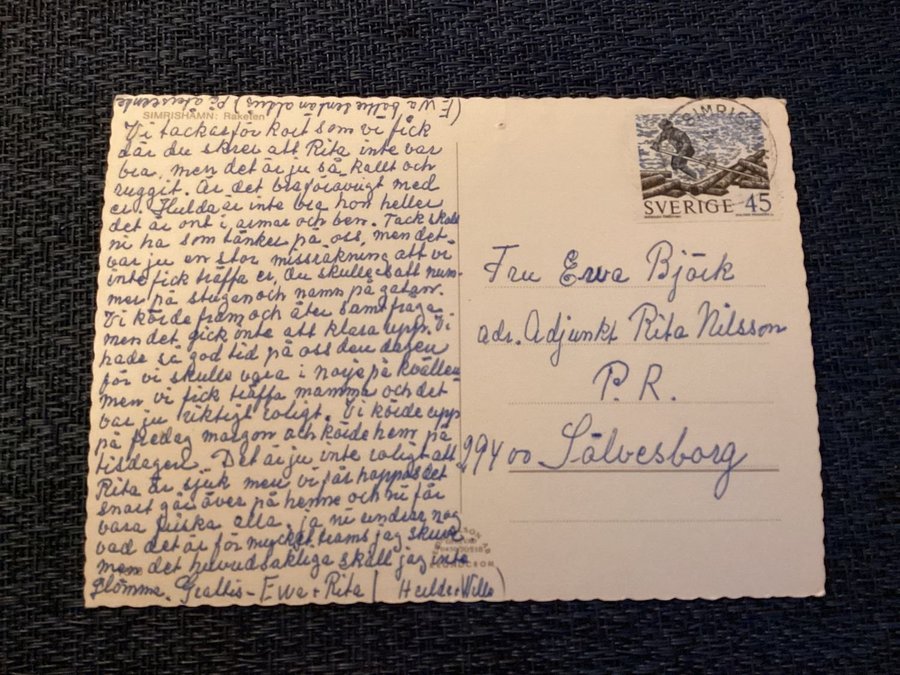 SIMRISHAMN: Raketen
Vi tackar för kort som vi fick
där du skrev att Rita inte var
bra, men det är ju så kallt och
ruggit. Är det bra föravrigt med
er. Hulda är inte bra hon heller
det är ont i armar och ben. Tack skall
ni ha som tänker på oss, men det
var ju en stor missräkning att vi
inte fick träffa er, du skulle satt num-
mer på stugan och namn på gatan.
Vi körde fram och åter samt fråga
men det gick inte att klara upp. Vi
hade så god tid på oss den dagen
för vi skulle vara i på kvällen
men vi fick träffa mamma och det
var ju riktigt roligt. Vi körde upp
på fredag morgon och körde hem på
tisdagen. Det är ju inte roligt att
Rita är sjuk men vi får hoppas det
snart går över på henne och ni får
vara friska alla, ja ni undrar nog
vad det är för mycket trams jag skriver
men det huvudsakliga skall jag inte
glömma. Grattis - Ewa + Rita / Hulda + Wille
(Ewa sendan
SIMRIS
SVERIGE 45
Fru Ewa Björk
adr. Adjunkt Rita Nilsson
P. R.
294 00 Sölvesborg